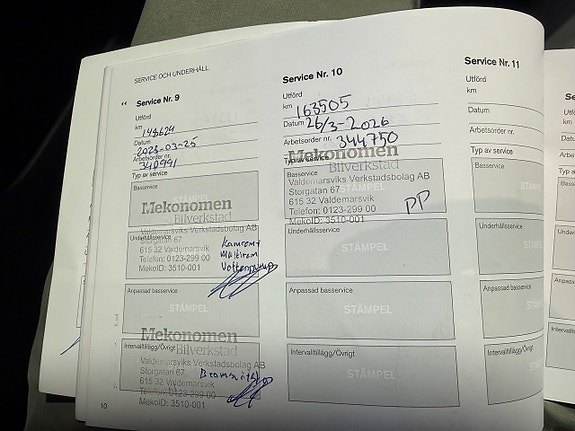 SERVICE OCH UNDERHÅLL
Service Nr. 9
Utförd
km 148624
Datum 2023-03-25
Arbetsorder nr. 340991
Typ av service
Basservice
Mekonomen
Bilverkstad
Valdemarsviks Verkstadsbolag AB
Underhållsservice
Storgatan 67
615 32 Valdemarsvik
Telefon: 0123-299 00
MekoID: 3510-001
Kamrem+
Multirem
Vattenpump
Anpassad basservice
STÄMPEL
Mekonomen
Bilverkstad
Intervalltillägg/Övrigt
Valdemarsviks Verkstadsbolag AB
Storgatan 67
615 32 Valdemarsvik
Telefon: 0123-299 00
MekoID: 3510-001
10
Service Nr. 10
Utförd
km 163505
Datum 26/3-2026
Arbetsorder nr. 344750
Typ av service
Mekonomen
Bilverkstad
Basservice
Valdemarsviks Verkstadsbolag AB
Storgatan 67
STÄMPEL
615 32 Valdemarsvik
Telefon: 0123-299 00
MekoID: 3510-001
PP
Underhållsservice
STÄMPEL
Anpassad basservice
STÄMPEL
Intervalltillägg/Övrigt
STÄMPEL
Service Nr. 11
Utförd
km
Datum
Arbetsorder nr.
Typ av service
Basservice
Underhållsservice
Anpassad basservice
Intervalltillägg/Övrigt